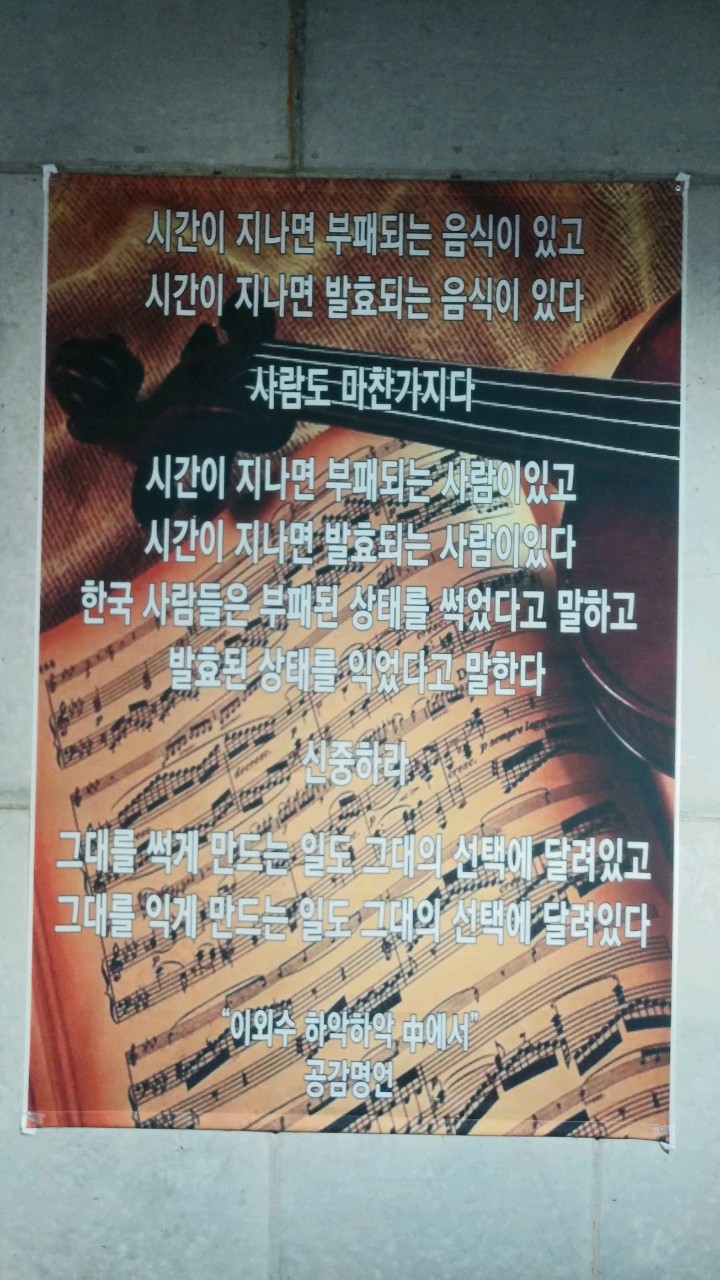 시간이 지나면 부패되는 음식이 있고
시간이 지나면 발효되는 음식이 있다
사람도 마찬가지다
시간이 지나면 부패되는 사람이있고
시간이 지나면 발효되는 사람이있다
한국 사람들은 부패된 상태를 썩었다고 말하고
발효된 상태를 익었다고 말한다
신중하라
그대를 썩게 만드는 일도 그대의 선택에 달려있고
그대를 익게 만드는 일도 그대의 선택에 달려있다
“이외수 하악하악 中에서”
공감명언